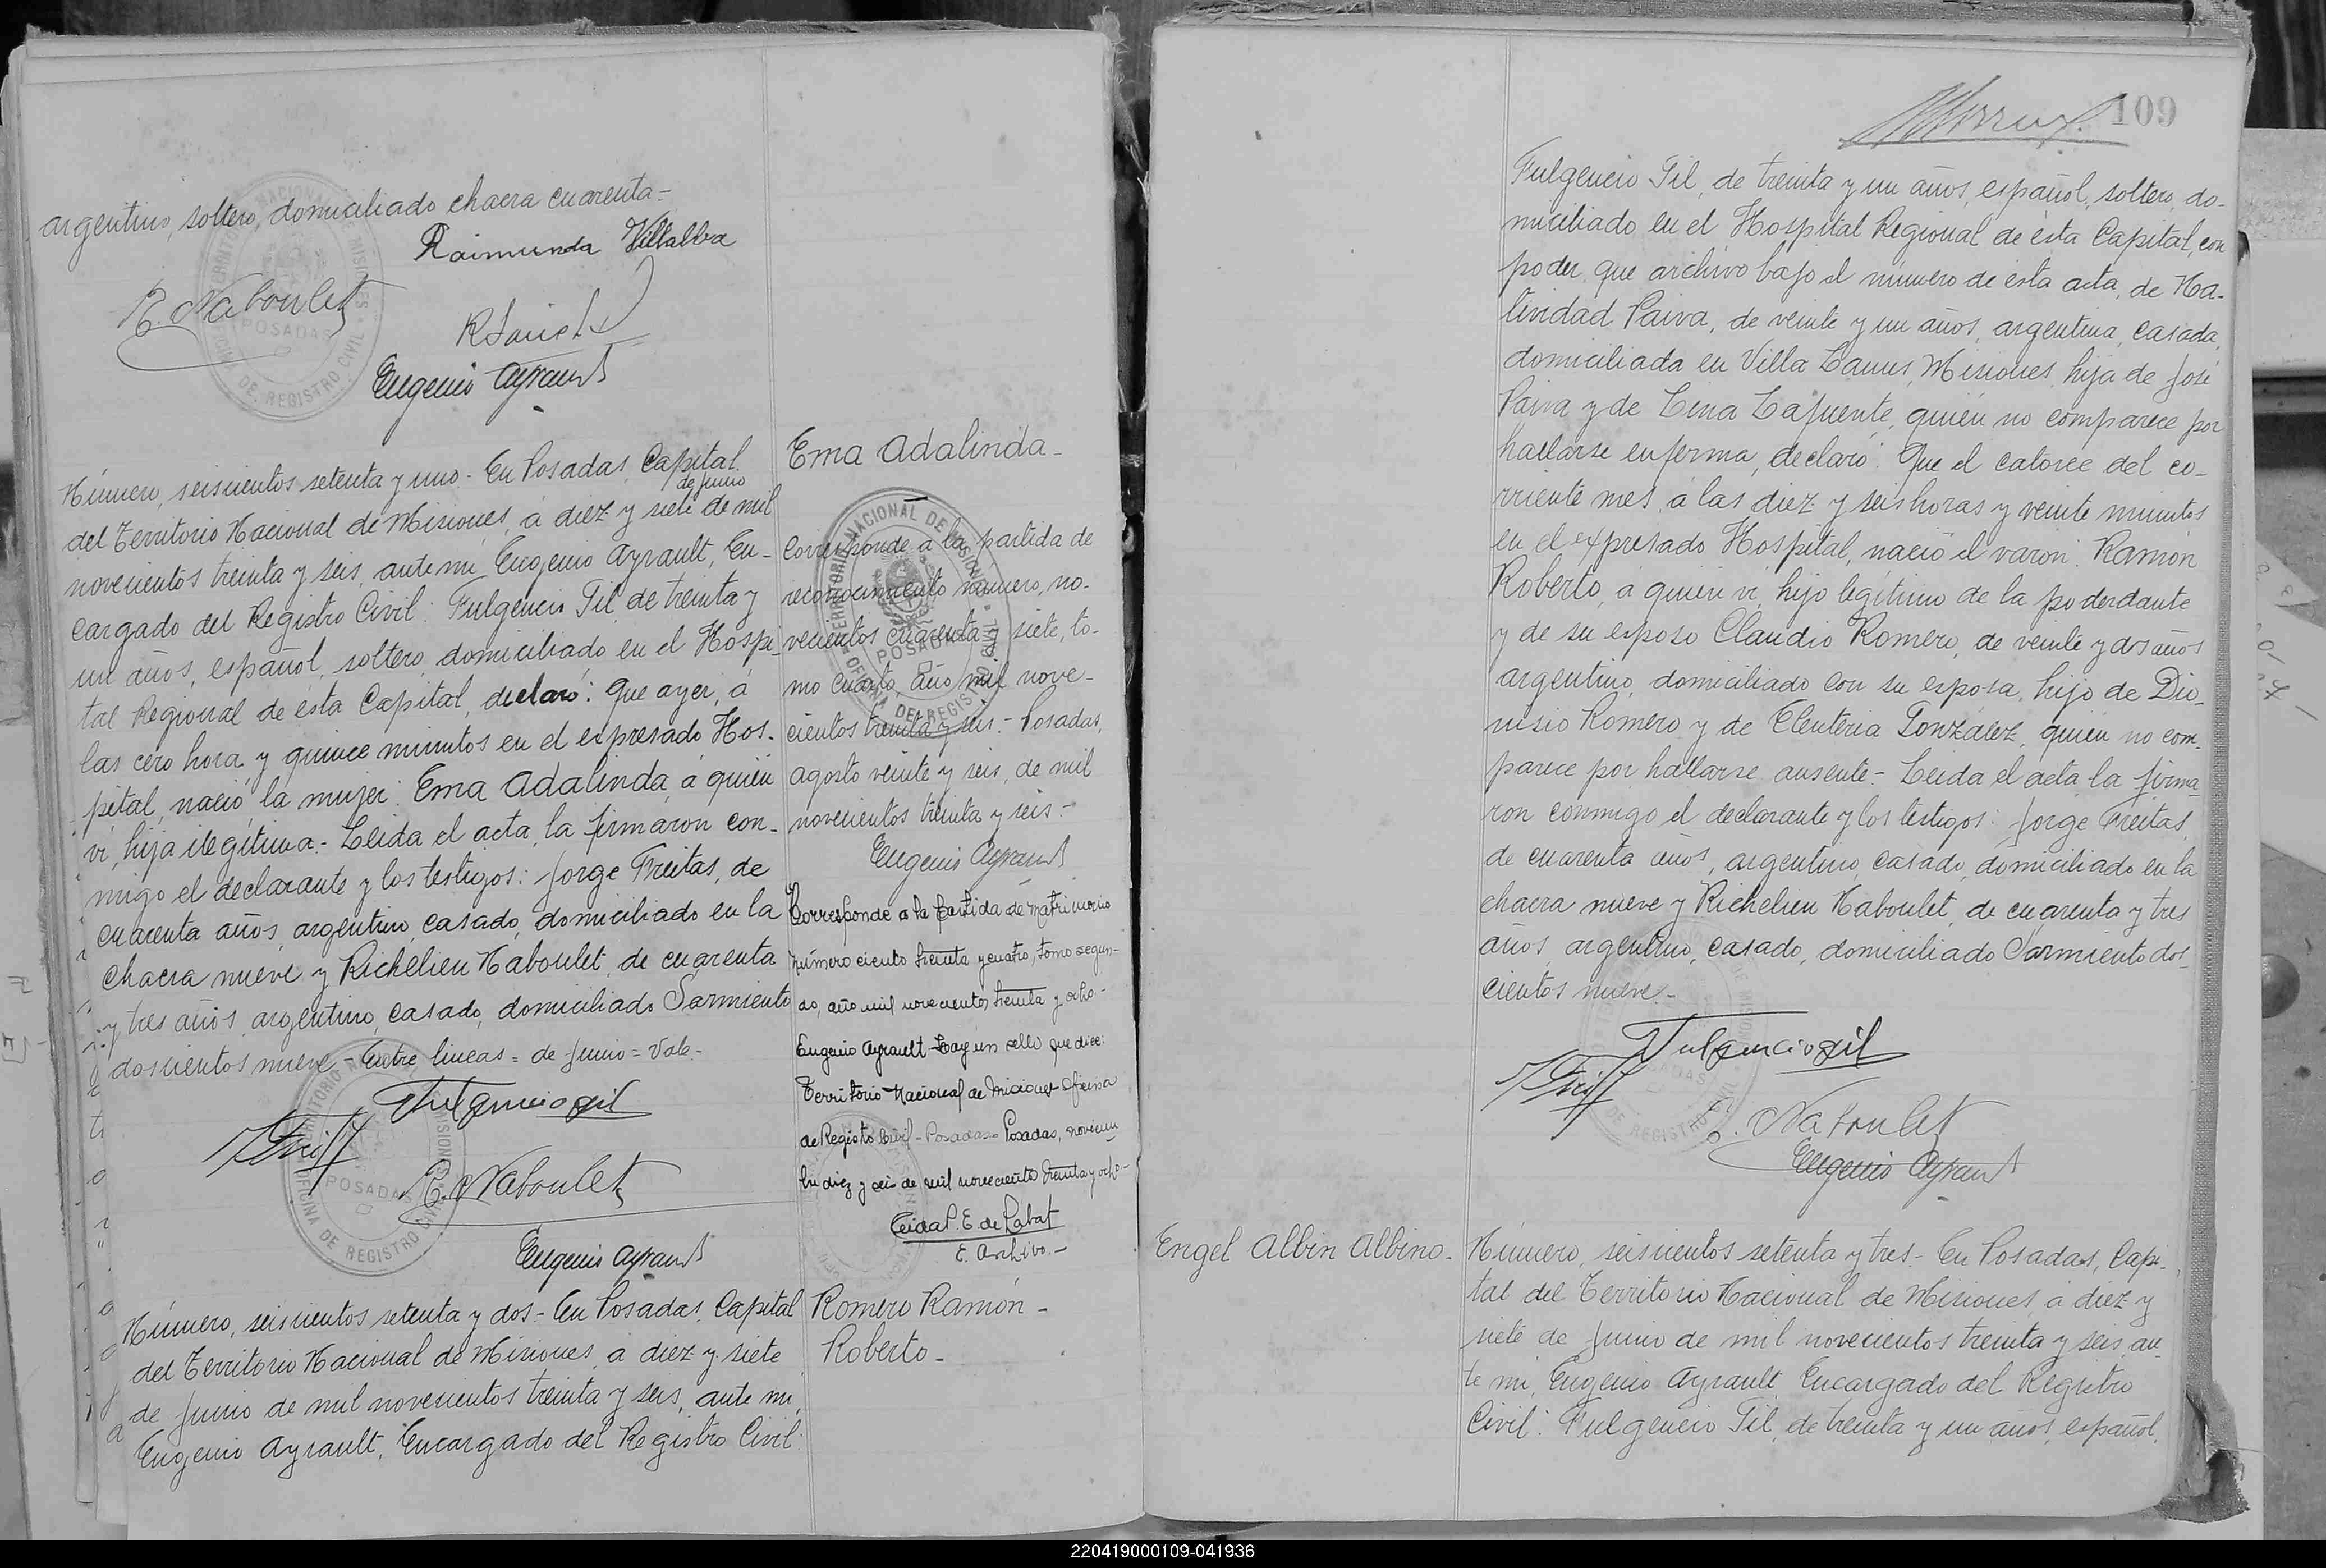 argentino, soltero, domiciliado chacra cuarenta-
Raimunda Villalba
R. Naboulet
Eugenio Ayrault
Número, seiscientos setenta y uno - En Posadas, Capital
de Junio
del Territorio Nacional de Misiones, a diez y siete de mil
novecientos treinta y seis, ante mi, Eugenio Ayrault, En-
cargado del Registro Civil: Fulgencio Gil, de treinta y
un años, español, soltero, domiciliado en el Hospi-
tal Regional de ésta Capital, declaró: Que ayer, á
las cero hora y quince minutos en el expresado Hos-
pital, nació la mujer: Ema Adalinda, á quién
vi, hija ilegítima - Leida el acta, la firmaron con-
migo el declarante y los testigos: Jorge Freitas, de
cuarenta años, argentino, casado, domiciliado en la
chacra nueve y Richelieu Naboulet, de cuarenta
y tres años, argentino, casado, domiciliado Sarmiento
doscientos nueve - Entre lineas = de Junio = Vale -
Fulgencio Gil
R. Naboulet
Eugenio Ayrault
Número, seiscientos setenta y dos - En Posadas, Capital
del Territorio Nacional de Misiones, a diez y siete
de Junio de mil novecientos treinta y seis, ante mi,
Eugenio Ayrault, Encargado del Registro Civil:
Ema Adalinda -
Corresponde a la partida de
reconocimiento número, no-
vecientos cuarenta y siete, to-
mo cuarto, Año mil nove-
cientos treinta y seis - Posadas,
agosto veinte y seis, de mil
novecientos treinta y seis -
Eugenio Ayrault
Corresponde a la Partida de Matrimonio
número ciento treinta y cuatro, tomo segun-
do, año mil novecientos treinta y ocho -
Eugenio Ayrault - Hay un sello que dice:
Territorio Nacional de Misiones - Oficina
de Registro Civil - Posadas - Posadas, noviem
bre diez y seis de mil novecientos treinta y ocho -
P. E. de Labat
E. Archivo -
Romero Ramón -
Roberto -
TERRITORIO NACIONAL DE MISIONES
POSADAS
OFICINA DE REGISTRO CIVIL
109
Fulgencio Gil, de treinta y un años, español, soltero, do-
miciliado en el Hospital Regional de ésta Capital, con
poder que archivo bajo el número de ésta acta, de Na-
tividad Paiva, de veinte y un años, argentina, casada,
domiciliada en Villa Lanus, Misiones, hija de José
Paiva y de Lina Lafuente, quién no comparece por
hallarse enferma, declaró: Que el catorce del co-
rriente mes, á las diez y seis horas y veinte minutos
en el expresado Hospital, nació el varón: Ramón
Roberto, á quién vi, hijo legítimo de la poderdante
y de su esposo Claudio Romero, de veinte y dos años
argentino, domiciliado con su esposa, hijo de Dio-
nisio Romero y de Eleuteria González, quién no com-
parece por hallarse ausente - Leida el acta, la firma
ron conmigo el declarante y los testigos: Jorge Freitas,
de cuarenta años, argentino, casado, domiciliado en la
chacra nueve y Richelieu Naboulet, de cuarenta y tres
años, argentino, casado, domiciliado Sarmiento dos-
cientos nueve -
Fulgencio Gil
R. Naboulet
Eugenio Ayrault
Engel Albin Albino -
Número, seiscientos setenta y tres - En Posadas, Capi-
tal del Territorio Nacional de Misiones, a diez y
siete de Junio de mil novecientos treinta y seis, an-
te mi, Eugenio Ayrault, Encargado del Registro
Civil: Fulgencio Gil, de treinta y un años, español,
220419000109-041936